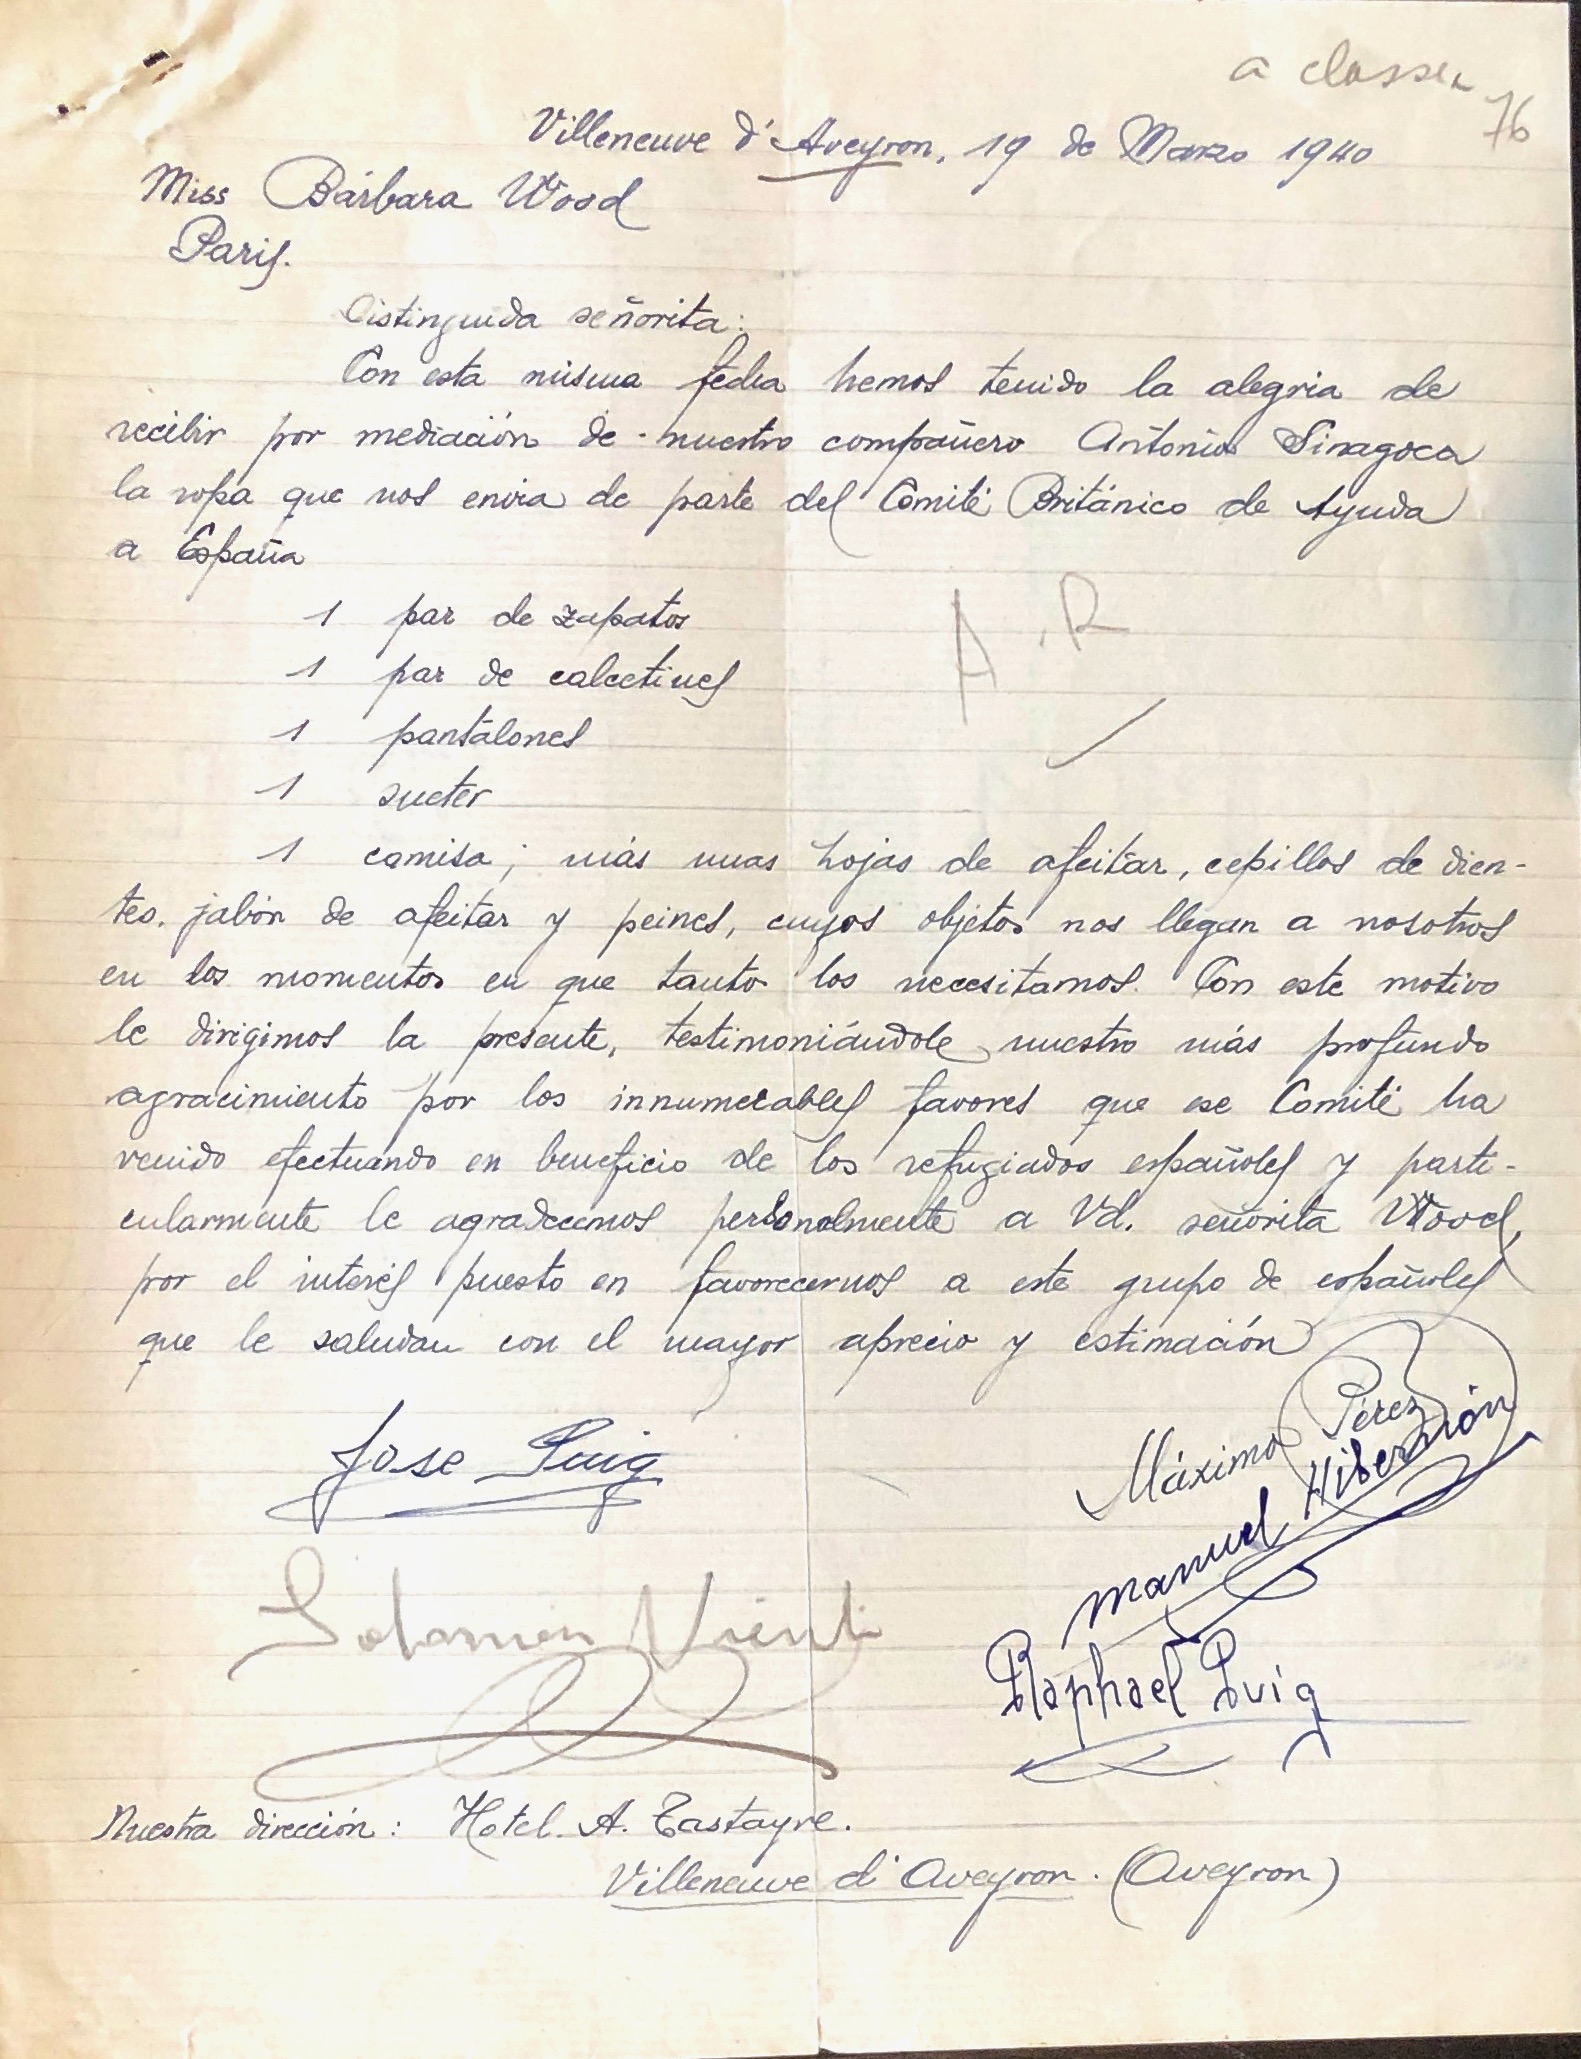 a classer
76
Villeneuve d'Aveyron, 19 de Marzo 1940
Miss Bárbara Wood
Paris.
Distinguida señorita:
Con esta misma fecha hemos tenido la alegria de
recibir por mediación de nuestro compañero Antonio Sinagoca
la ropa que nos envia de parte del Comité Británico de Ayuda
a España
1 par de zapatos
1 par de calcetines
1 pantalones
1 sueter
1 camisa; más unas hojas de afeitar, cepillos de dien-
tes, jabón de afeitar y peines, cuyos objetos nos llegan a nosotros
en los momentos en que tanto los necesitamos. Con este motivo
le dirigimos la presente, testimoniándole nuestro más profundo
agracimiento por los innumerables favores que ese Comité ha
venido efectuando en beneficio de los refugiados españoles y parti-
cularmente le agradecemos personalmente a Vd. señorita Wood,
por el interés puesto en favorecernos a este grupo de españoles
que le saludan con el mayor aprecio y estimación
A.R
Jose Puig
Máximo Pérez
Manuel Hibernón
Salamon
Raphael Puig
Nuestra dirección: Hotel A. Tastayre.
Villeneuve d'Aveyron. (Aveyron)